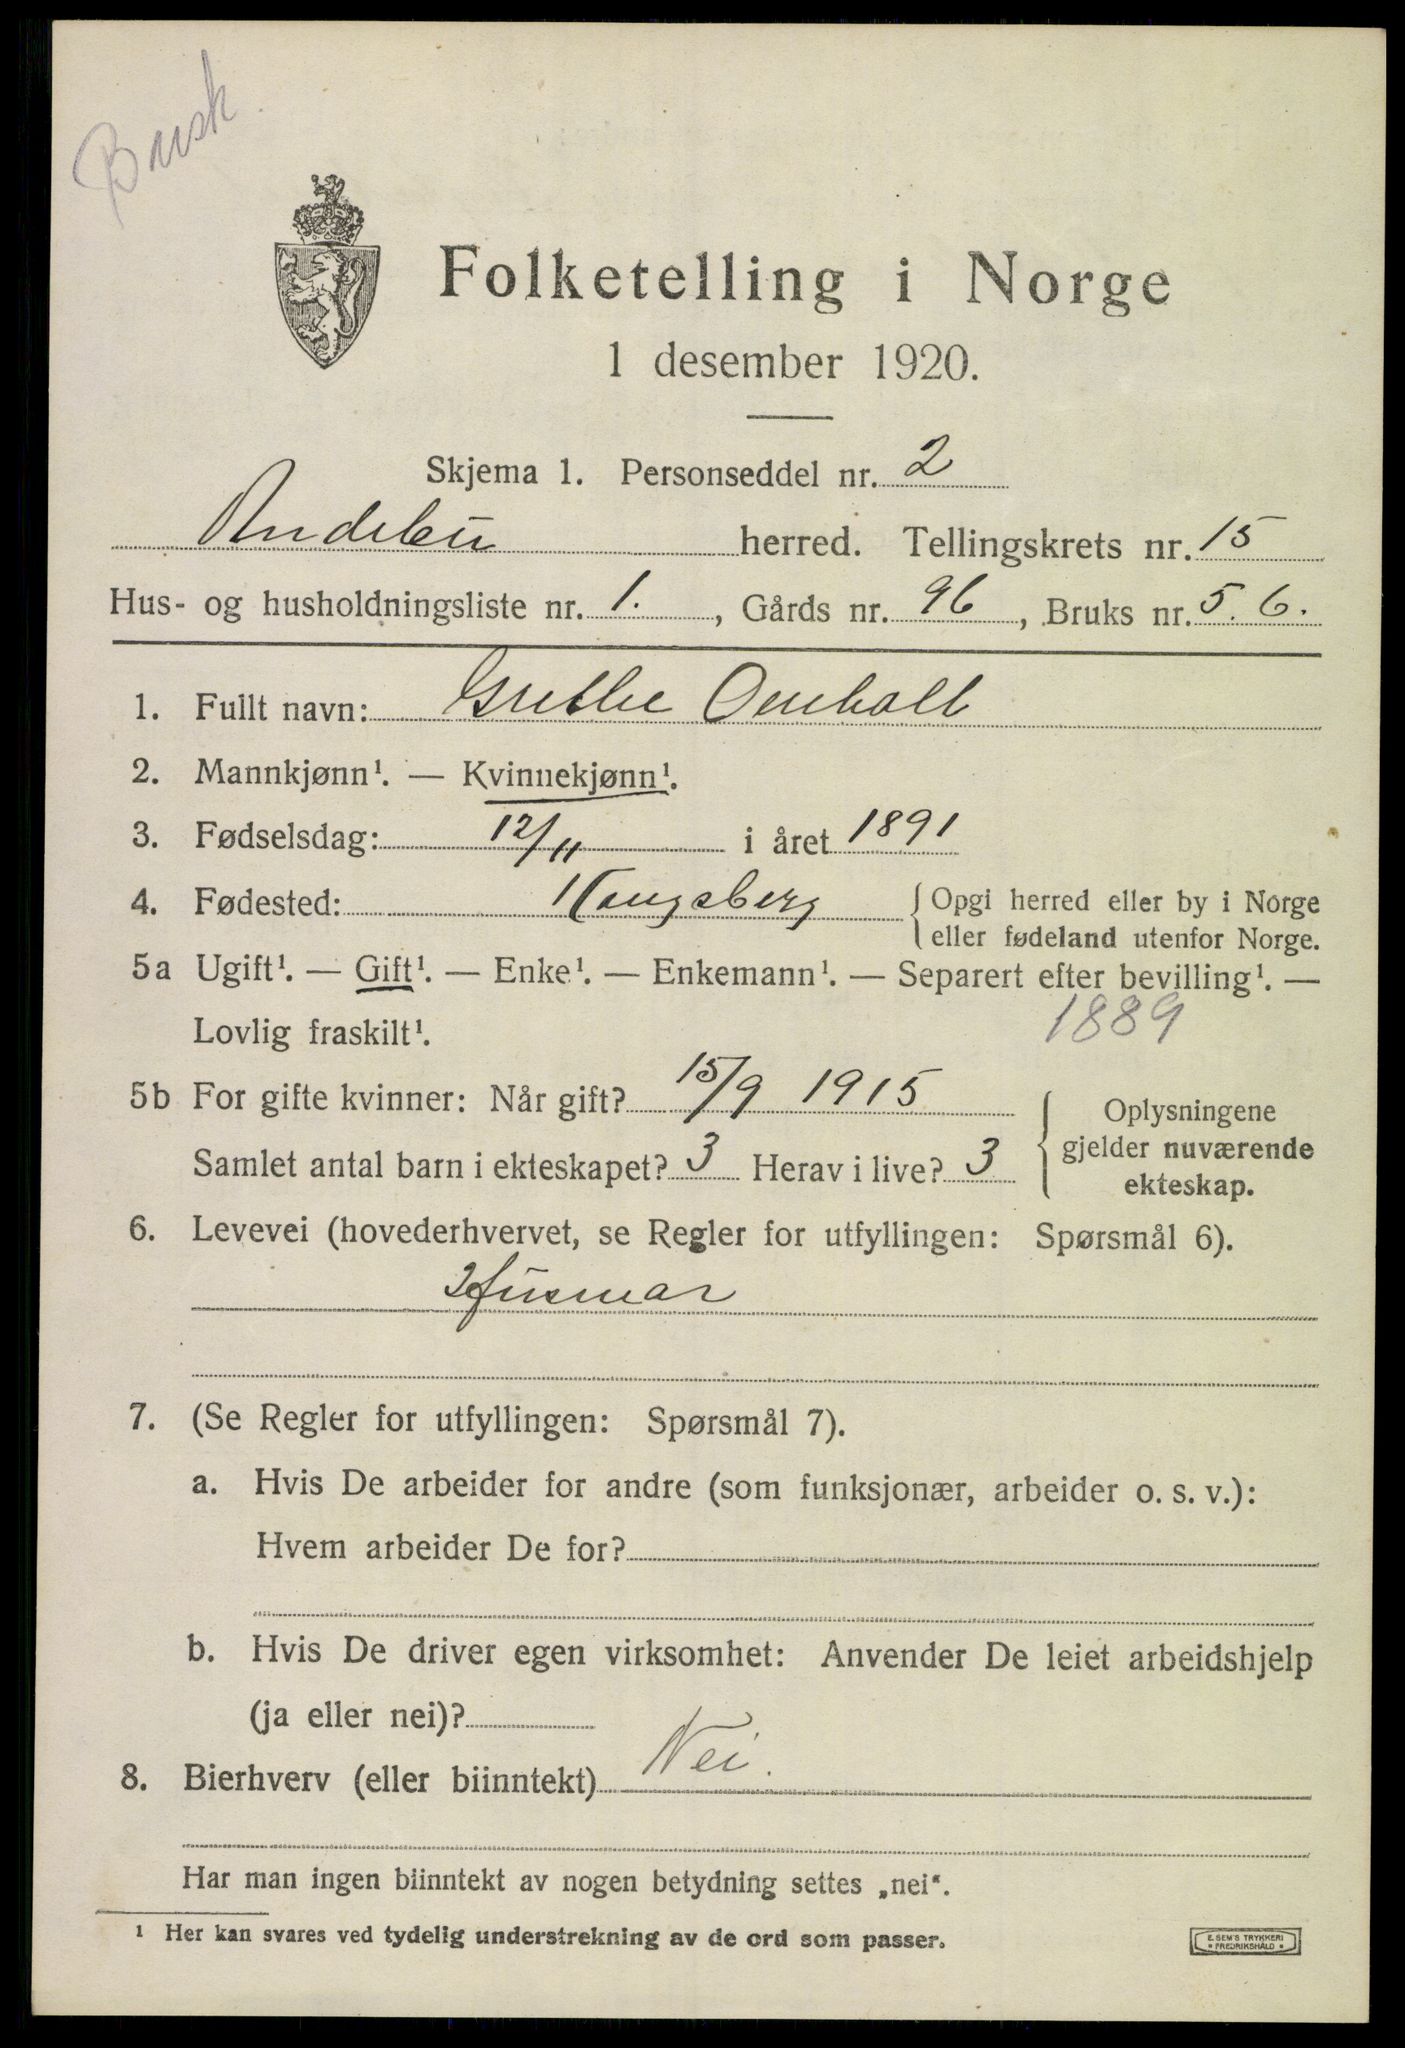 Busk.
Folketelling i Norge
1 desember 1920.
Skjema 1. Personseddel nr. 2
Andebu herred. Tellingskrets nr. 15
Hus- og husholdningsliste nr. 1. , Gårds nr. 96 , Bruks nr. 5. 6.
1. Fullt navn: Grethe Omholt
2. Mannkjønn¹. — Kvinnekjønn¹.
3. Fødselsdag: 12/11 i året 1891
4. Fødested: Kongsberg { Opgi herred eller by i Norge
eller fødeland utenfor Norge.
5a Ugift¹. — Gift¹. — Enke¹. — Enkemann¹. — Separert efter bevilling¹. —
Lovlig fraskilt¹. 1889
5b For gifte kvinner: Når gift? 15/9 1915
Samlet antal barn i ekteskapet? 3 Herav i live? 3
Oplysningene
gjelder nuværende
ekteskap.
6. Levevei (hovederhvervet, se Regler for utfyllingen: Spørsmål 6).
Husmor
7. (Se Regler for utfyllingen: Spørsmål 7).
a. Hvis De arbeider for andre (som funksjonær, arbeider o. s. v.):
Hvem arbeider De for?
b. Hvis De driver egen virksomhet: Anvender De leiet arbeidshjelp
(ja eller nei)?
8. Bierhverv (eller biinntekt) Nei.
Har man ingen biinntekt av nogen betydning settes „nei“.
¹ Her kan svares ved tydelig understrekning av de ord som passer.
E. SEM'S TRYKKERI
* FREDRIKSHALD *